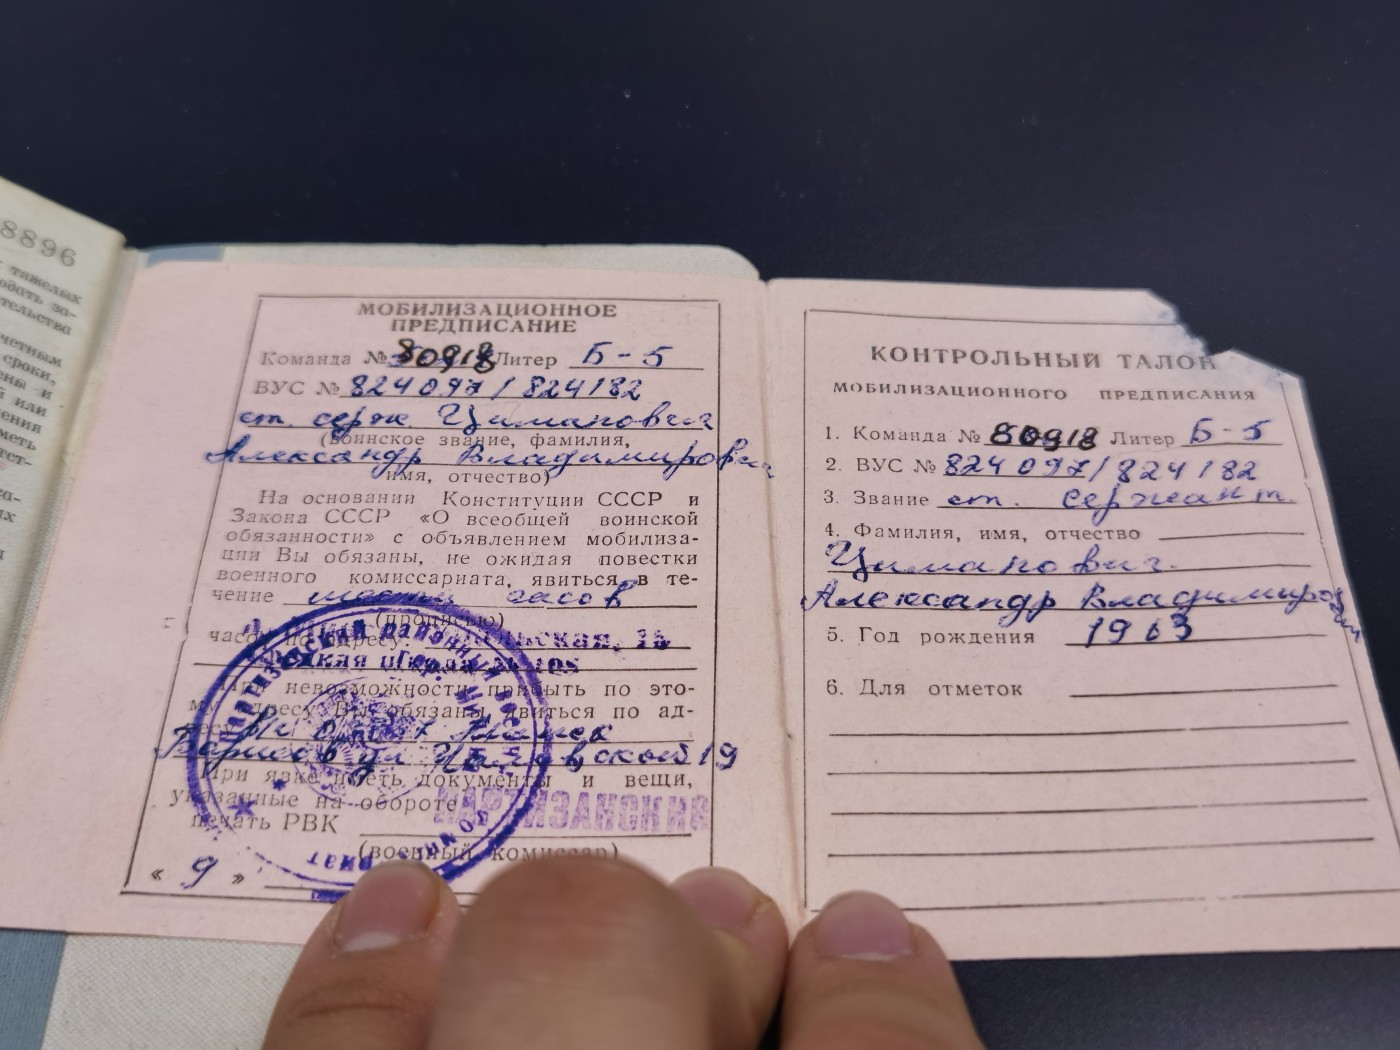 8896
тяжелых
МОБИЛИЗАЦИОННОЕ
ПРЕДПИСАНИЕ
Команда № 80918 Литер Б-5
ВУС № 824097/824182
ст. серж. Циманович
(воинское звание, фамилия,
Александр Владимирович
имя, отчество)
На основании Конституции СССР и
Закона СССР «О всеобщей воинской
обязанности» с объявлением мобилиза-
ции Вы обязаны, не ожидая повестки
военного комиссариата, явиться в те-
чение шести часов
(прописью)
часов по адресу:
При невозможности прибыть по это-
му адресу Вы обязаны явиться по ад-
ресу
19
При явке иметь документы и вещи,
указанные на обороте
печать РВК
(военный комиссар)
« 9 »
КОНТРОЛЬНЫЙ ТАЛОН
МОБИЛИЗАЦИОННОГО ПРЕДПИСАНИЯ
1. Команда № 80918 Литер Б-5
2. ВУС № 824097/824182
3. Звание ст. сержант.
4. Фамилия, имя, отчество
Циманович
Александр Владимирович
5. Год рождения 1963
6. Для отметок